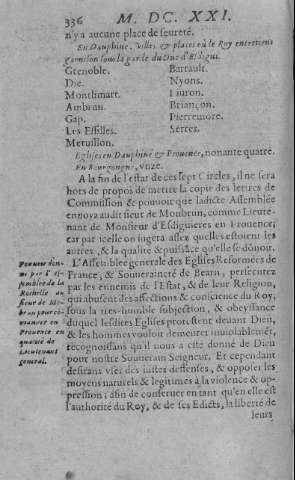 336 M. DC. XXI.
n'y a aucune place de seureté.
En Dauphiné, Villes & places où le Roy entretient
garnison sous la garde du Duc d'Esdigui.
Grenoble. Barrault.
Die. Nyons.
Montlimart. Liuron.
Ambrun. Briançon.
Gap. Pierremore.
Les Essilles. Serres.
Meruillon.
Eglises en Dauphiné & Prouence, nonante quatre.
En Bourgongne, vnze.
A la fin de l'estat de ces sept Circles, il ne sera
hors de propos de mettre la copie des lettres de
Commission & pouuoir que ladicte Assemblée
enuoya audit sieur de Monbrun, comme Lieute-
nant de Monsieur d'Esdiguieres en Prouence;
car par icelle on iugera assez quelles estoient les
& la qualité & puissãce qu'elle se dõnoit.
L'Assemblee generale des Eglises Reformées de
France, & Souueraineté de Bearn, persecutez
par les ennemis de l'Estat, & de leur Religion,
qui abusent des affections & conscience du Roy,
sous la tres-humble subjection, & obeyssance
duquel lesdites Eglises protestent deuant Dieu,
& les hommes vouloir demeurer inuiolablemẽt,
recognoissans qu'il nous a esté donné de Dieu
pour nostre Souuerain Seigneur. Et cependant
desirans vser des iustes deffenses, & opposer les
moyens naturels & legitimes à la violence & op-
pression; afin de conseruer en tant qu'en elle est
l'authorité du Roy, & de ses Edicts, la liberté de
leurs
Pouuoir don-
né par l'As-
semblée de la
Rochelle au
sieur de Mõ-
brun pour co-
mander en
Prouence en
qualité de
Lieutenant
general.